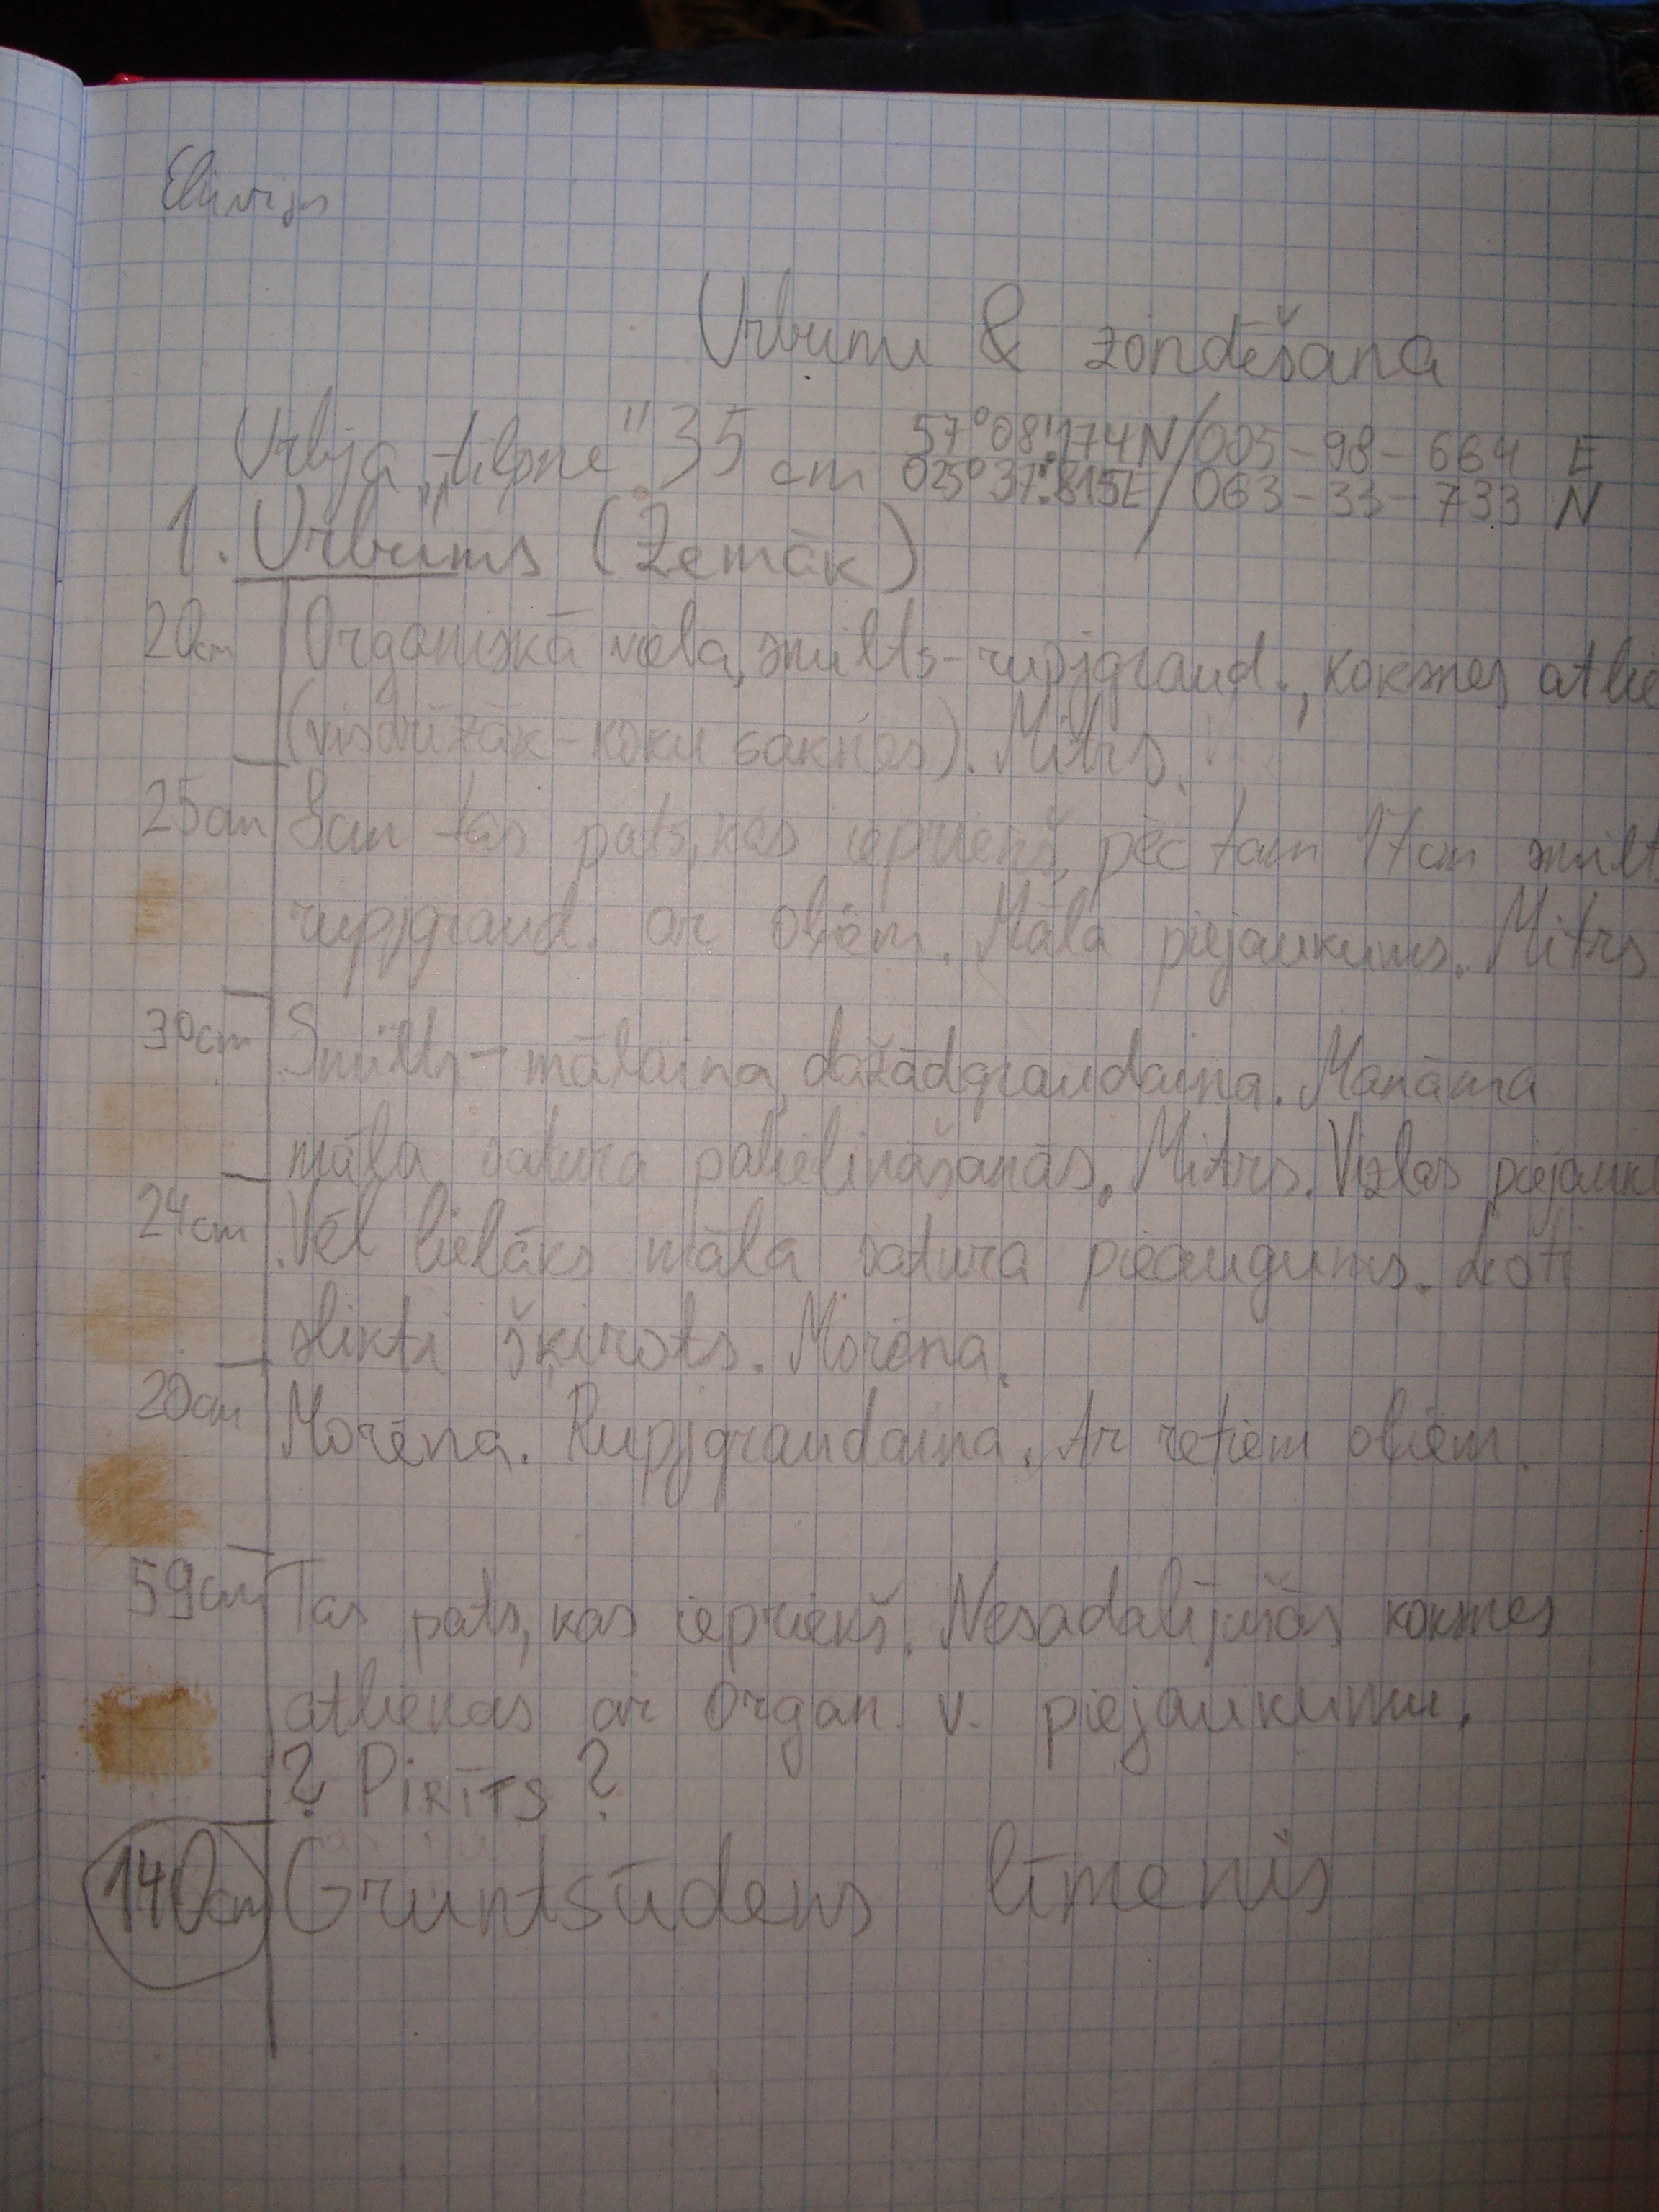 Elīvijs
Urbumi & zondēšana
Urbja „tilpne" 35 cm 57°08'.174N/005-98-664 E
025°37'.815E/063-33-733 N
1. Urbums (Zemāk)
20cm Organiskā viela, smilts-rupjgraud., koksnes atlie
(visdrīzāk-koku saknes). Mitrs.
25cm 8cm tas pats, kas iepriekš, pēc tam 17cm smilt
rupjgraud. ar oļiem. Māla piejaukums. Mitrs
30cm Smilts-mālaina, dažādgraudaina. Manāma
māla satura palielināšanās. Mitrs. Vizlas piejauk
24cm Vēl lielāks māla satura pieaugums. Ļoti
slikti šķirots. Morēna.
20cm Morēna. Rupjgraudaina. Ar retiem oļiem.
59cm Tas pats, kas iepriekš. Nesadalījušās koksnes
atliekas ar organ. v. piejaukumu.
? PIRĪTS ?
140cm Gruntsūdens līmenis